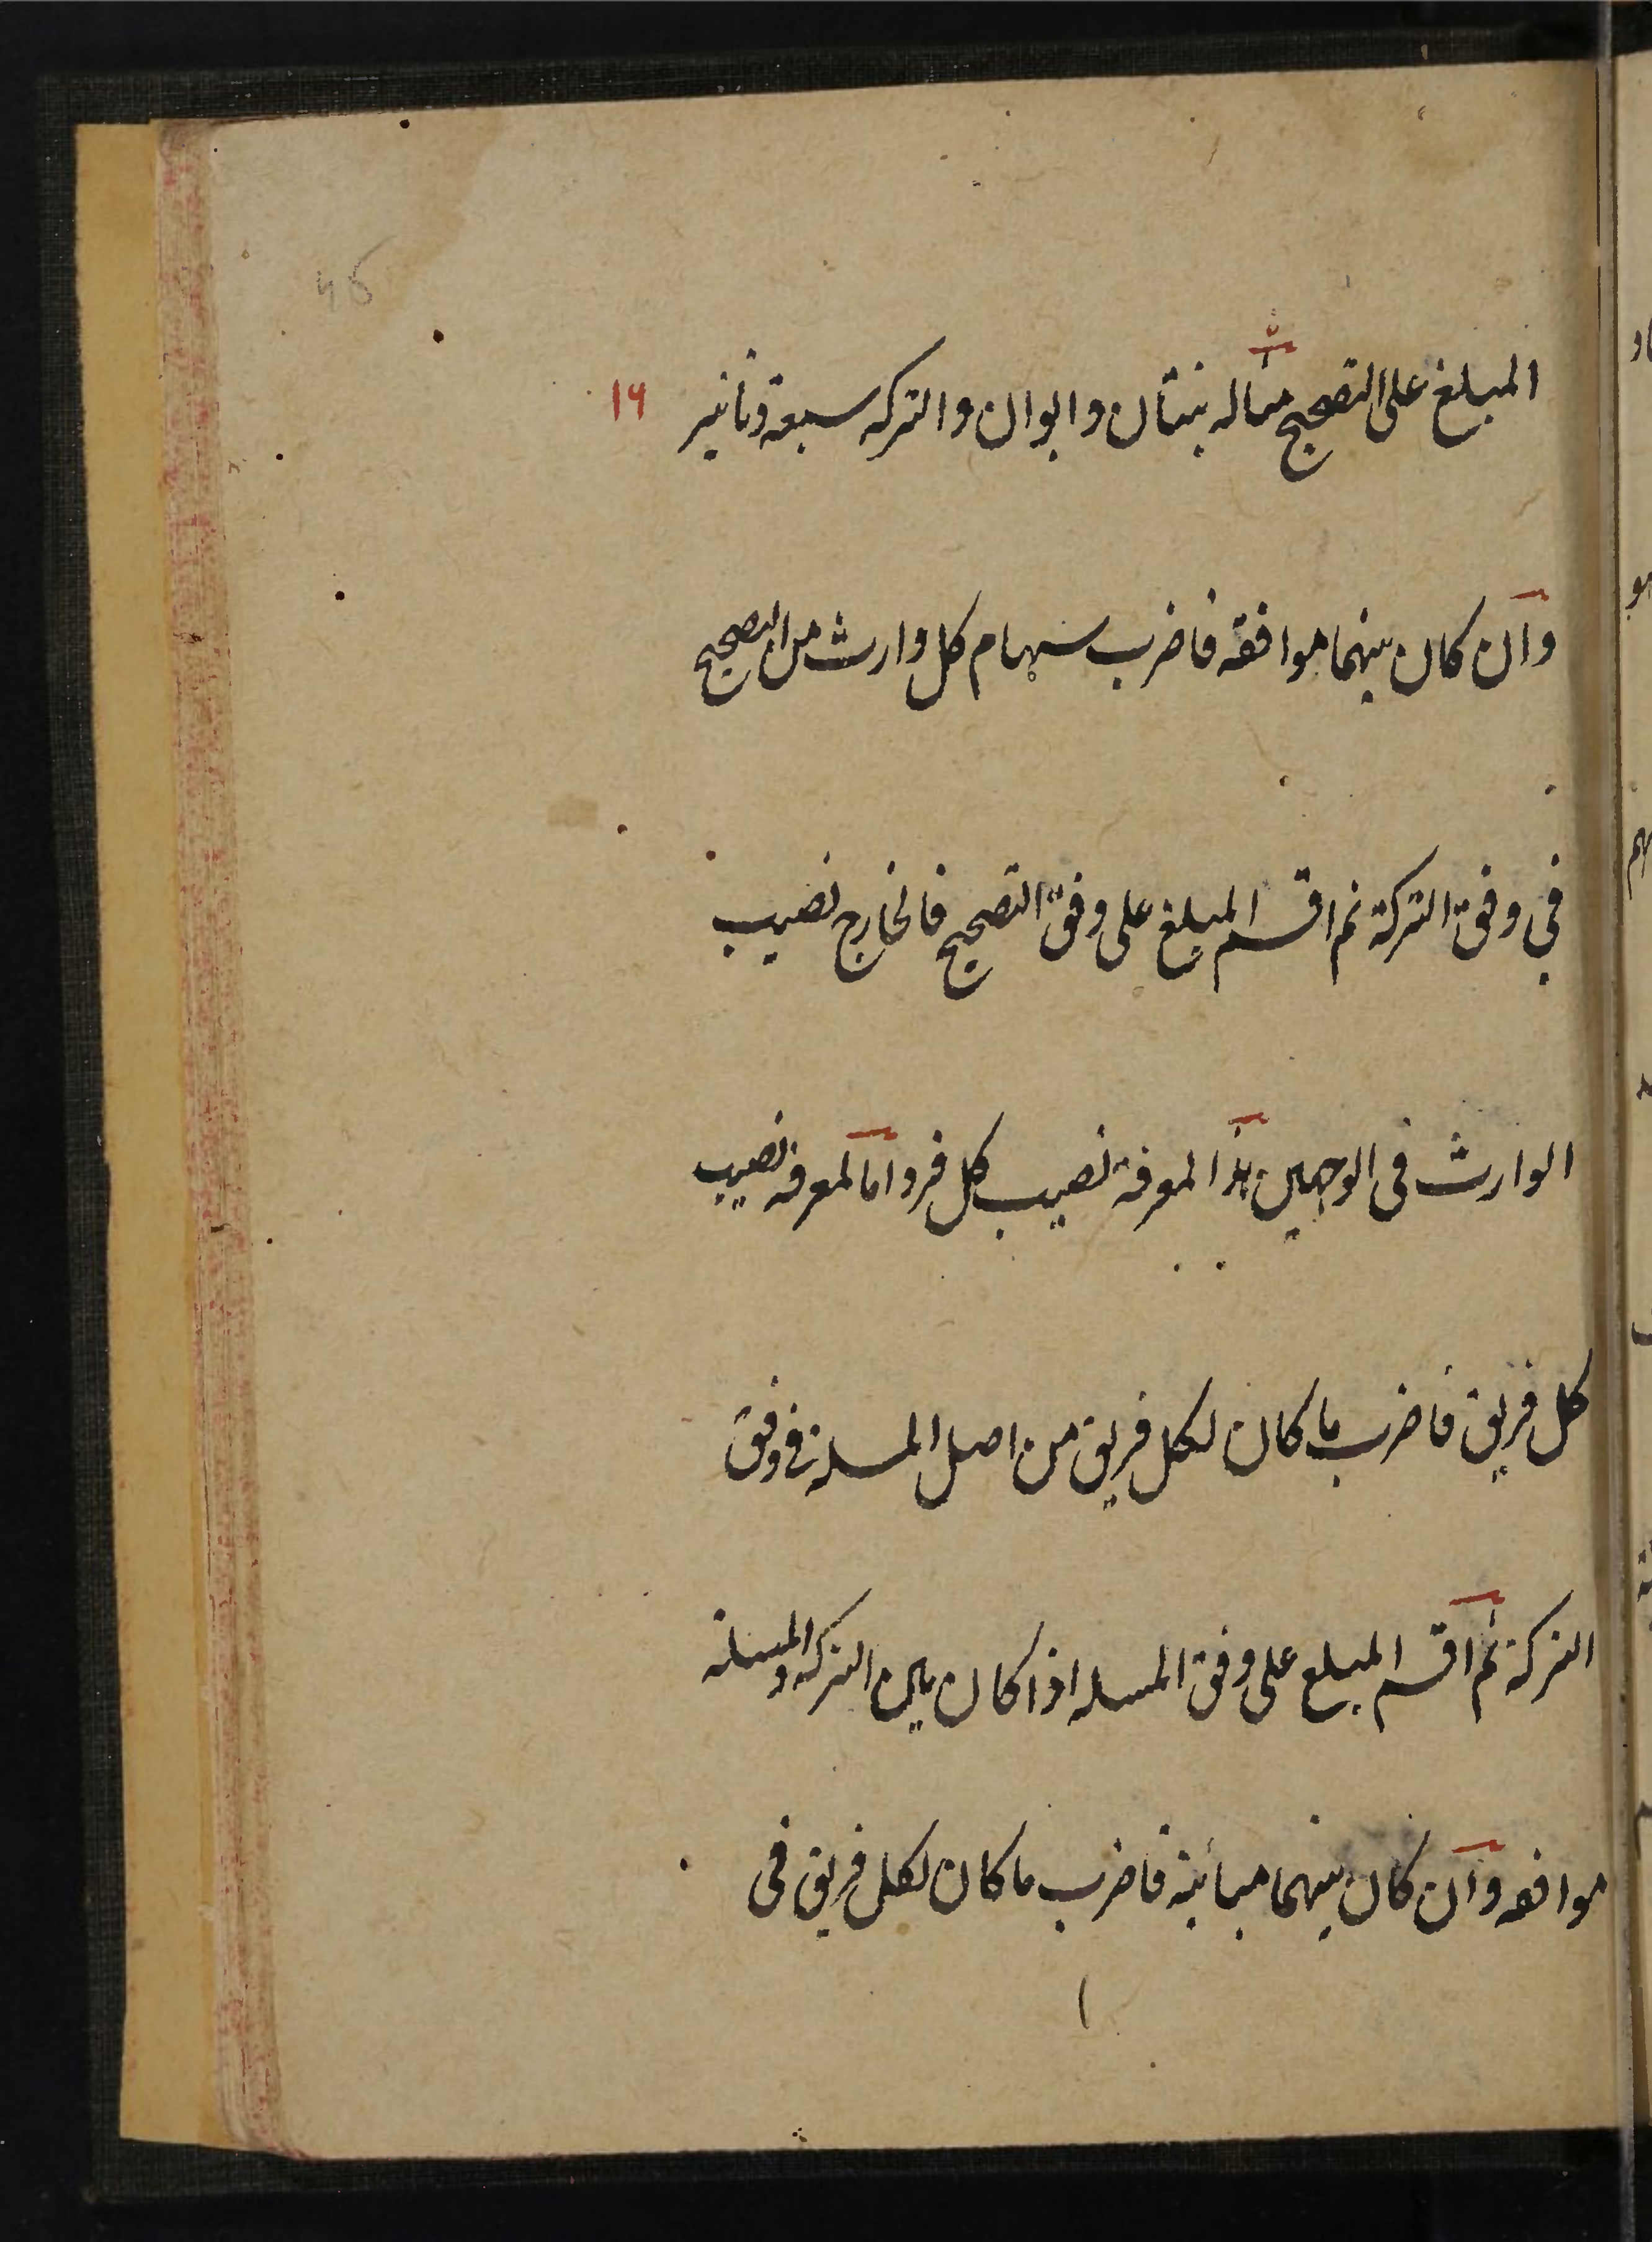 المبلغ على التصحيح مثاله بنتان وابوان والتركه سبعة دنانير ١٦
وان كان بينهما موافقه فاضرب سهام كل وارث من التصحيح
في وفق التركة ثم اقسم المبلغ على وفق التصحيح فالخارج نصيب
الوارث فى الوجهين هذا لمعرفة نصيب كل فرد اما لمعرفة نصيب
كل فريق فاضرب ما كان لكل فريق من اصل المسئلة فى وفق
التركة ثم اقسم المبلغ على وفق المسله اذا كان بين التركه والمسئلة
موافقه وان كان بينهما مبائنة فاضرب ما كان لكل فريق فى